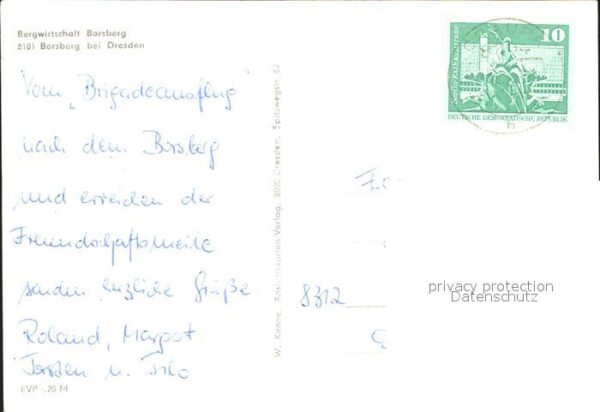 Bergwirtschaft Borsberg
8101 Borsberg bei Dresden
Vom "Brigadeausflug
nach dem Borsberg
und erreichen der
Freundschaftsmeile
senden herzliche Grüße
Roland, Margot
Torsten u. Tilo
EVP -,20 M
W. Kenne, Ansichtskarten-Verlag, 8020 Dresden, Spitzwegstr.
10
Berlin Rathausstraße
DEUTSCHE DEMOKRATISCHE REPUBLIK
8312
privacy protection
Datenschutz